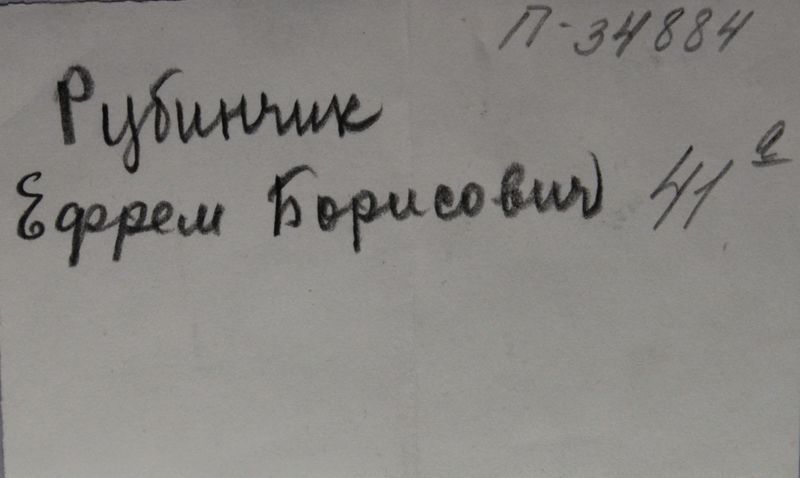 П-34884
Рубинчик
Ефрем Борисович 41